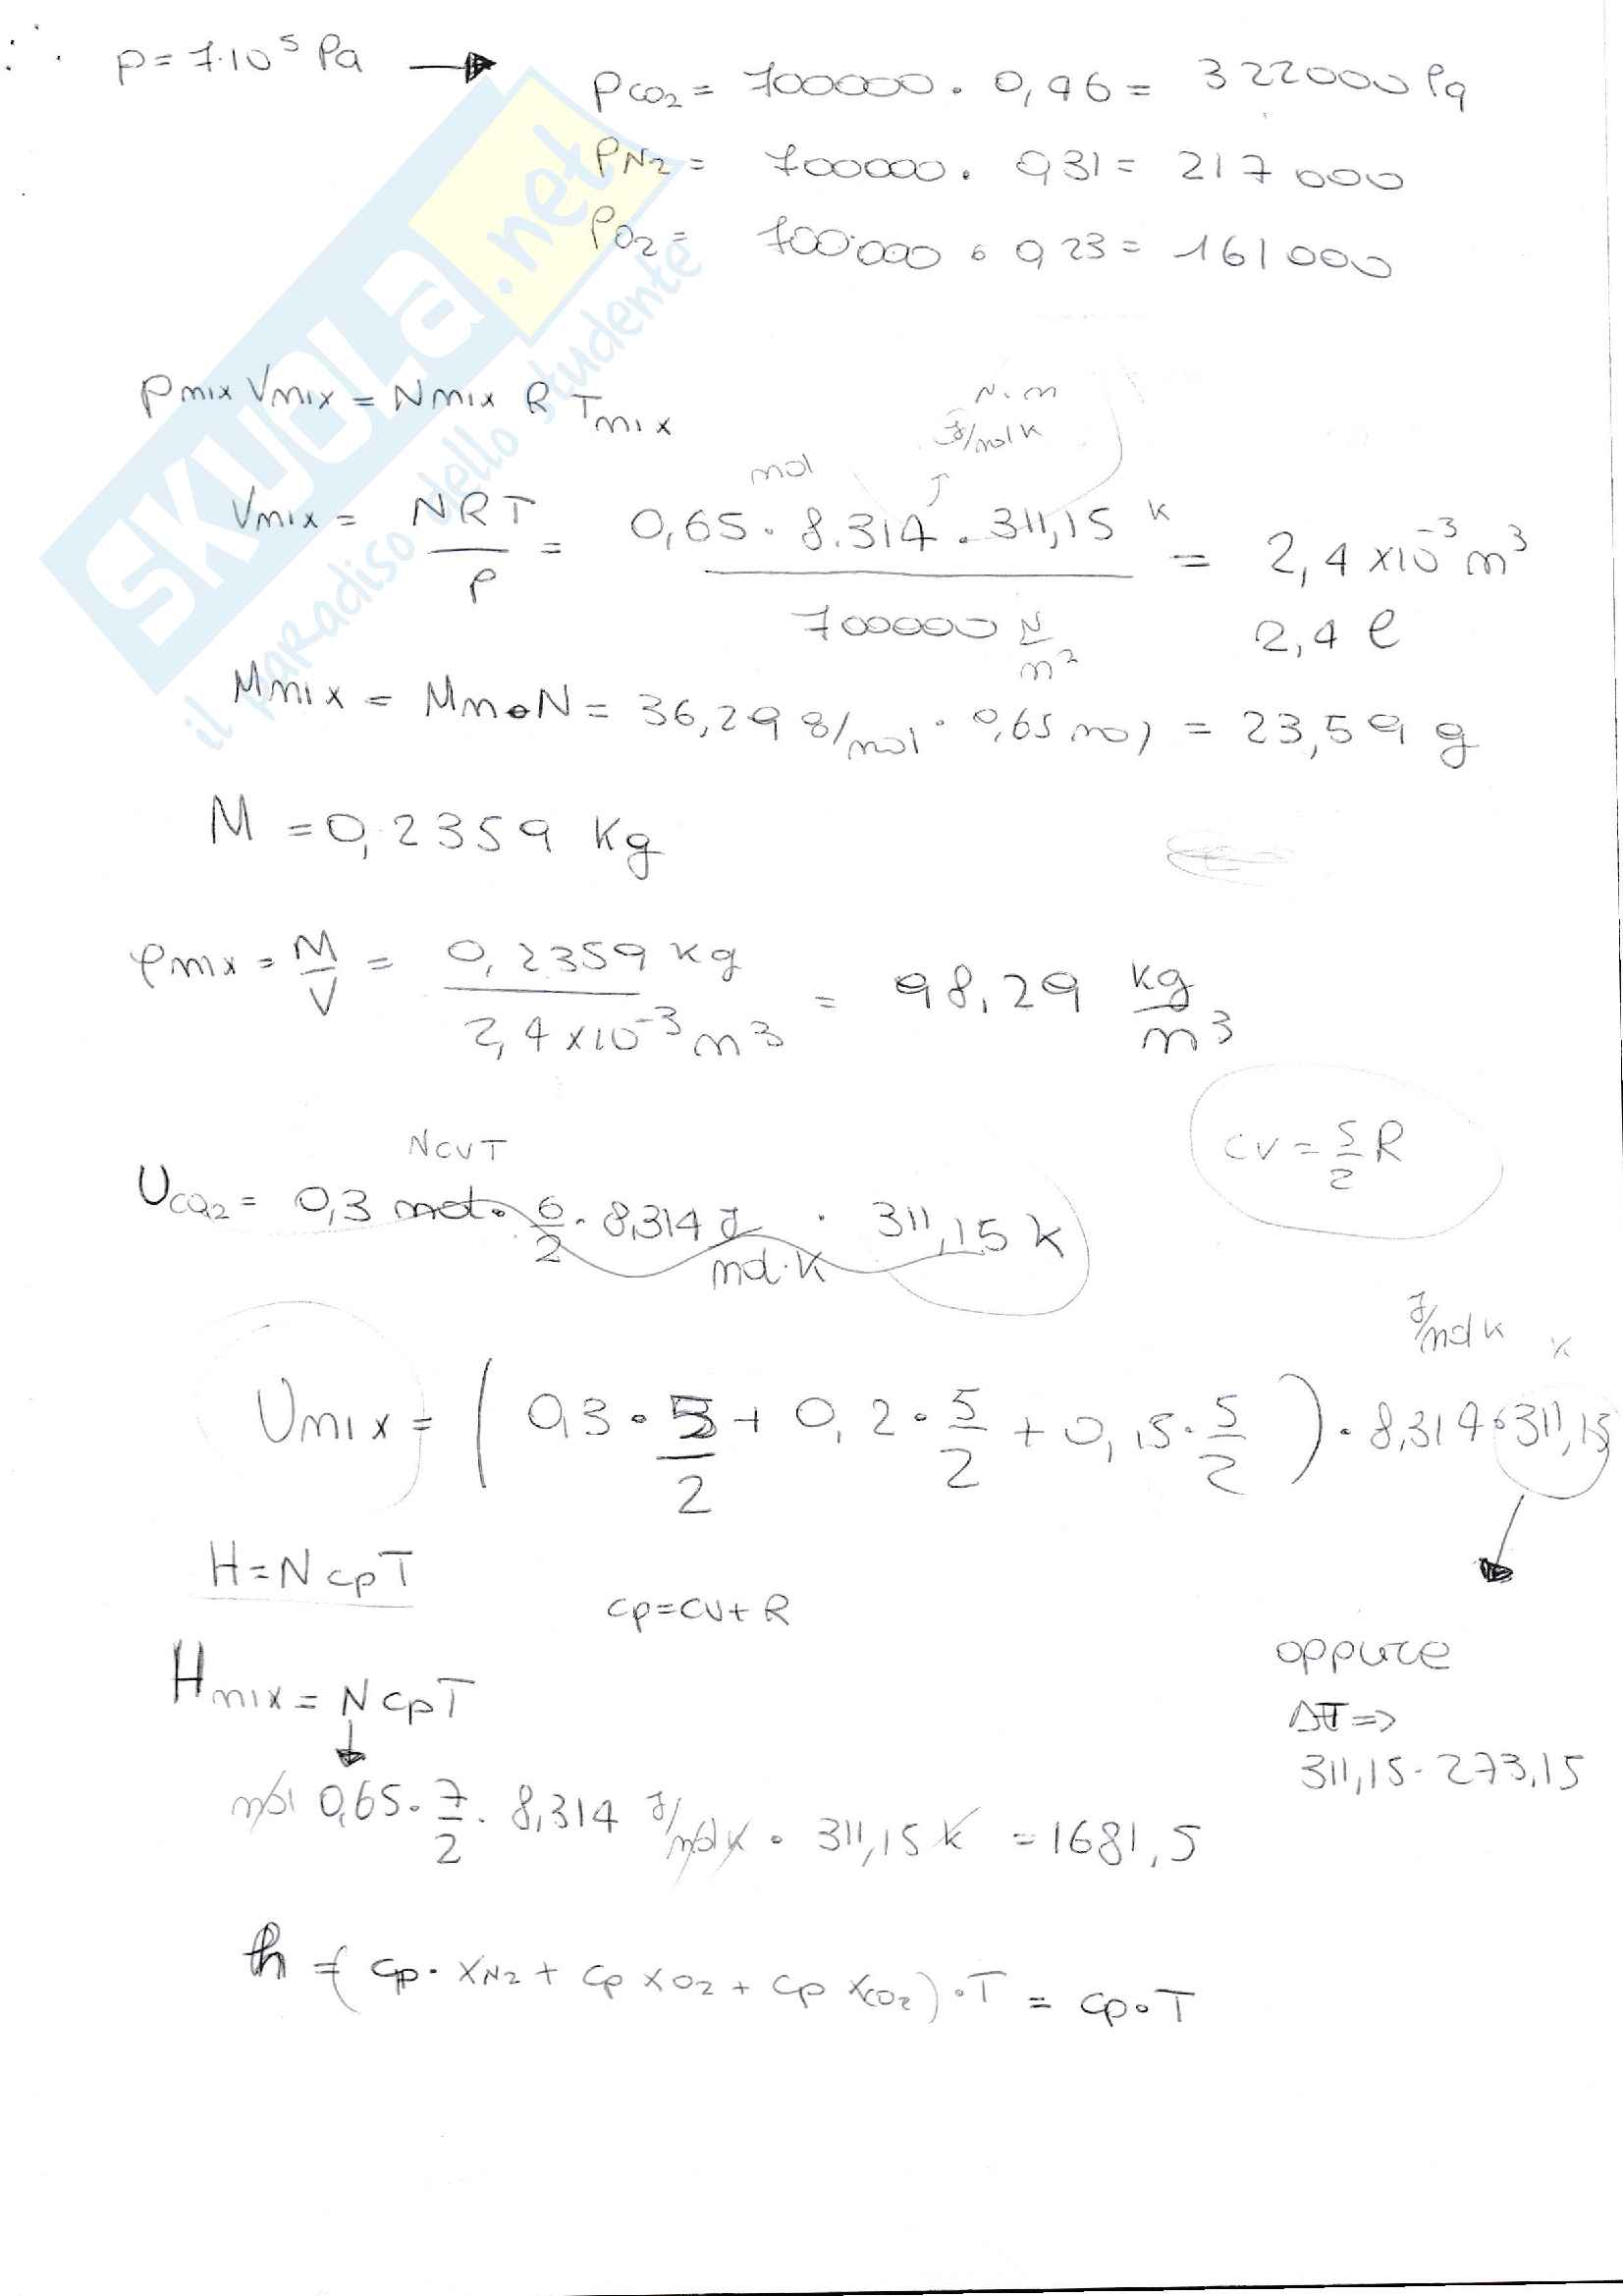 p = 7·10⁵ Pa → pCO₂ = 700000 · 0,46 = 322000 Pa
pN₂ = 700000 · 0,31 = 217000
pO₂ = 700000 · 0,23 = 161000
SKUOLA.net
il paradiso dello studente
pmix Vmix = Nmix R Tmix
N·m
J/mol K
mol
Vmix = NRT/p = 0,65 · 8.314 · 311,15 K / 700000 N/m² = 2,4 x10⁻³ m³
2,4 l
Mmix = Mm·N = 36,29 g/mol · 0,65 mol = 23,59 g
M = 0,2359 Kg
ρmx = M/V = 0,2359 kg / 2,4 x10⁻³ m³ = 98,29 kg/m³
cv = 5/2 R
NcvT
UCO₂ = 0,3 mol · 6/2 · 8,314 J/mol·K · 311,15 K
J/mol K K
Umix = ( 0,3 · 5/2 + 0,2 · 5/2 + 0,15 · 5/2 ) · 8,314 · 311,15
H = N cp T
cp = cv + R
oppure
ΔT =>
311,15 - 273,15
Hmix = N cp T
mol 0,65 · 7/2 · 8,314 J/mol K · 311,15 K = 1681,5
h = ( cp · xN₂ + cp xO₂ + cp xCO₂ ) · T = cp · T